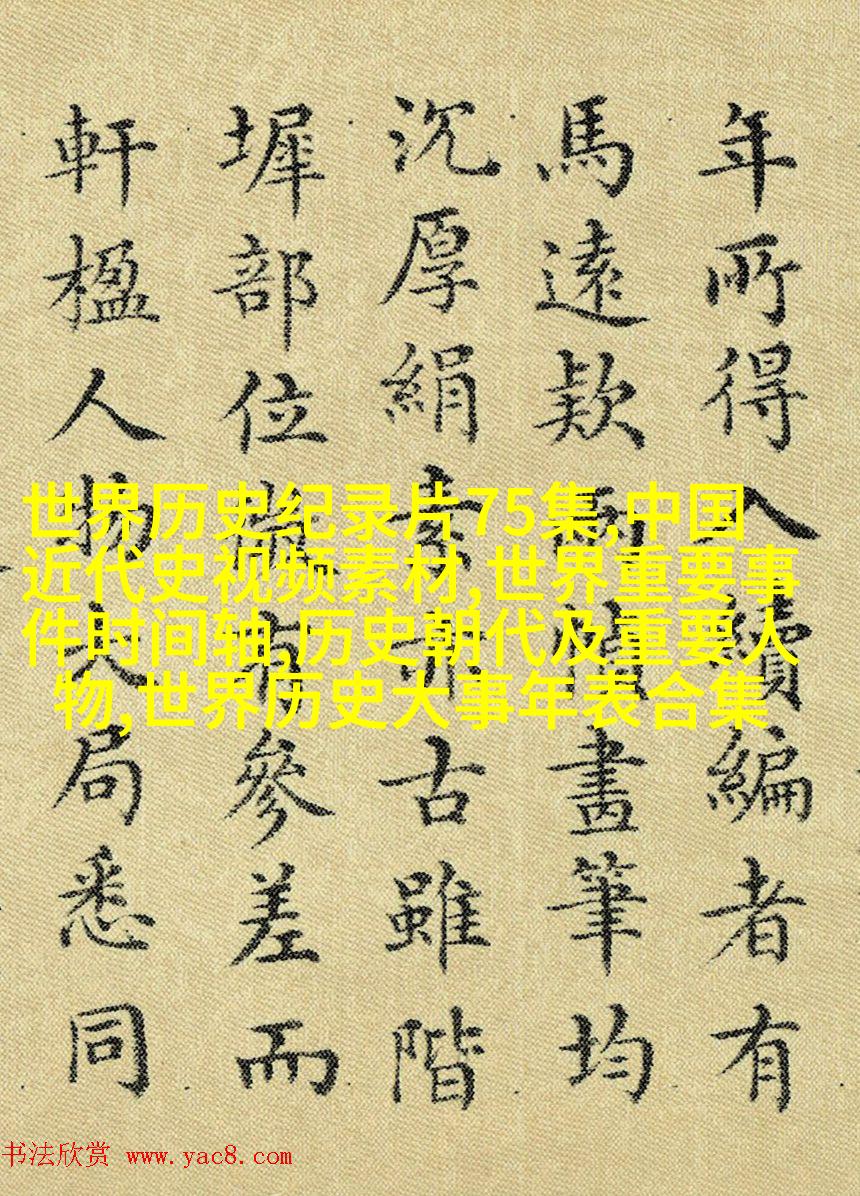 年所得入續編者有
馬遠欵畫筆均
沉厚絹素亦古雖階
墀部位微有參差而
軒楹人物大局悉同
世界历史纪录片75集,中国
近代史视频素材,世界重要事
件时间轴,历史朝代及重要人
物,世界历史大事年表合集
书法欣赏 www.yac8.com